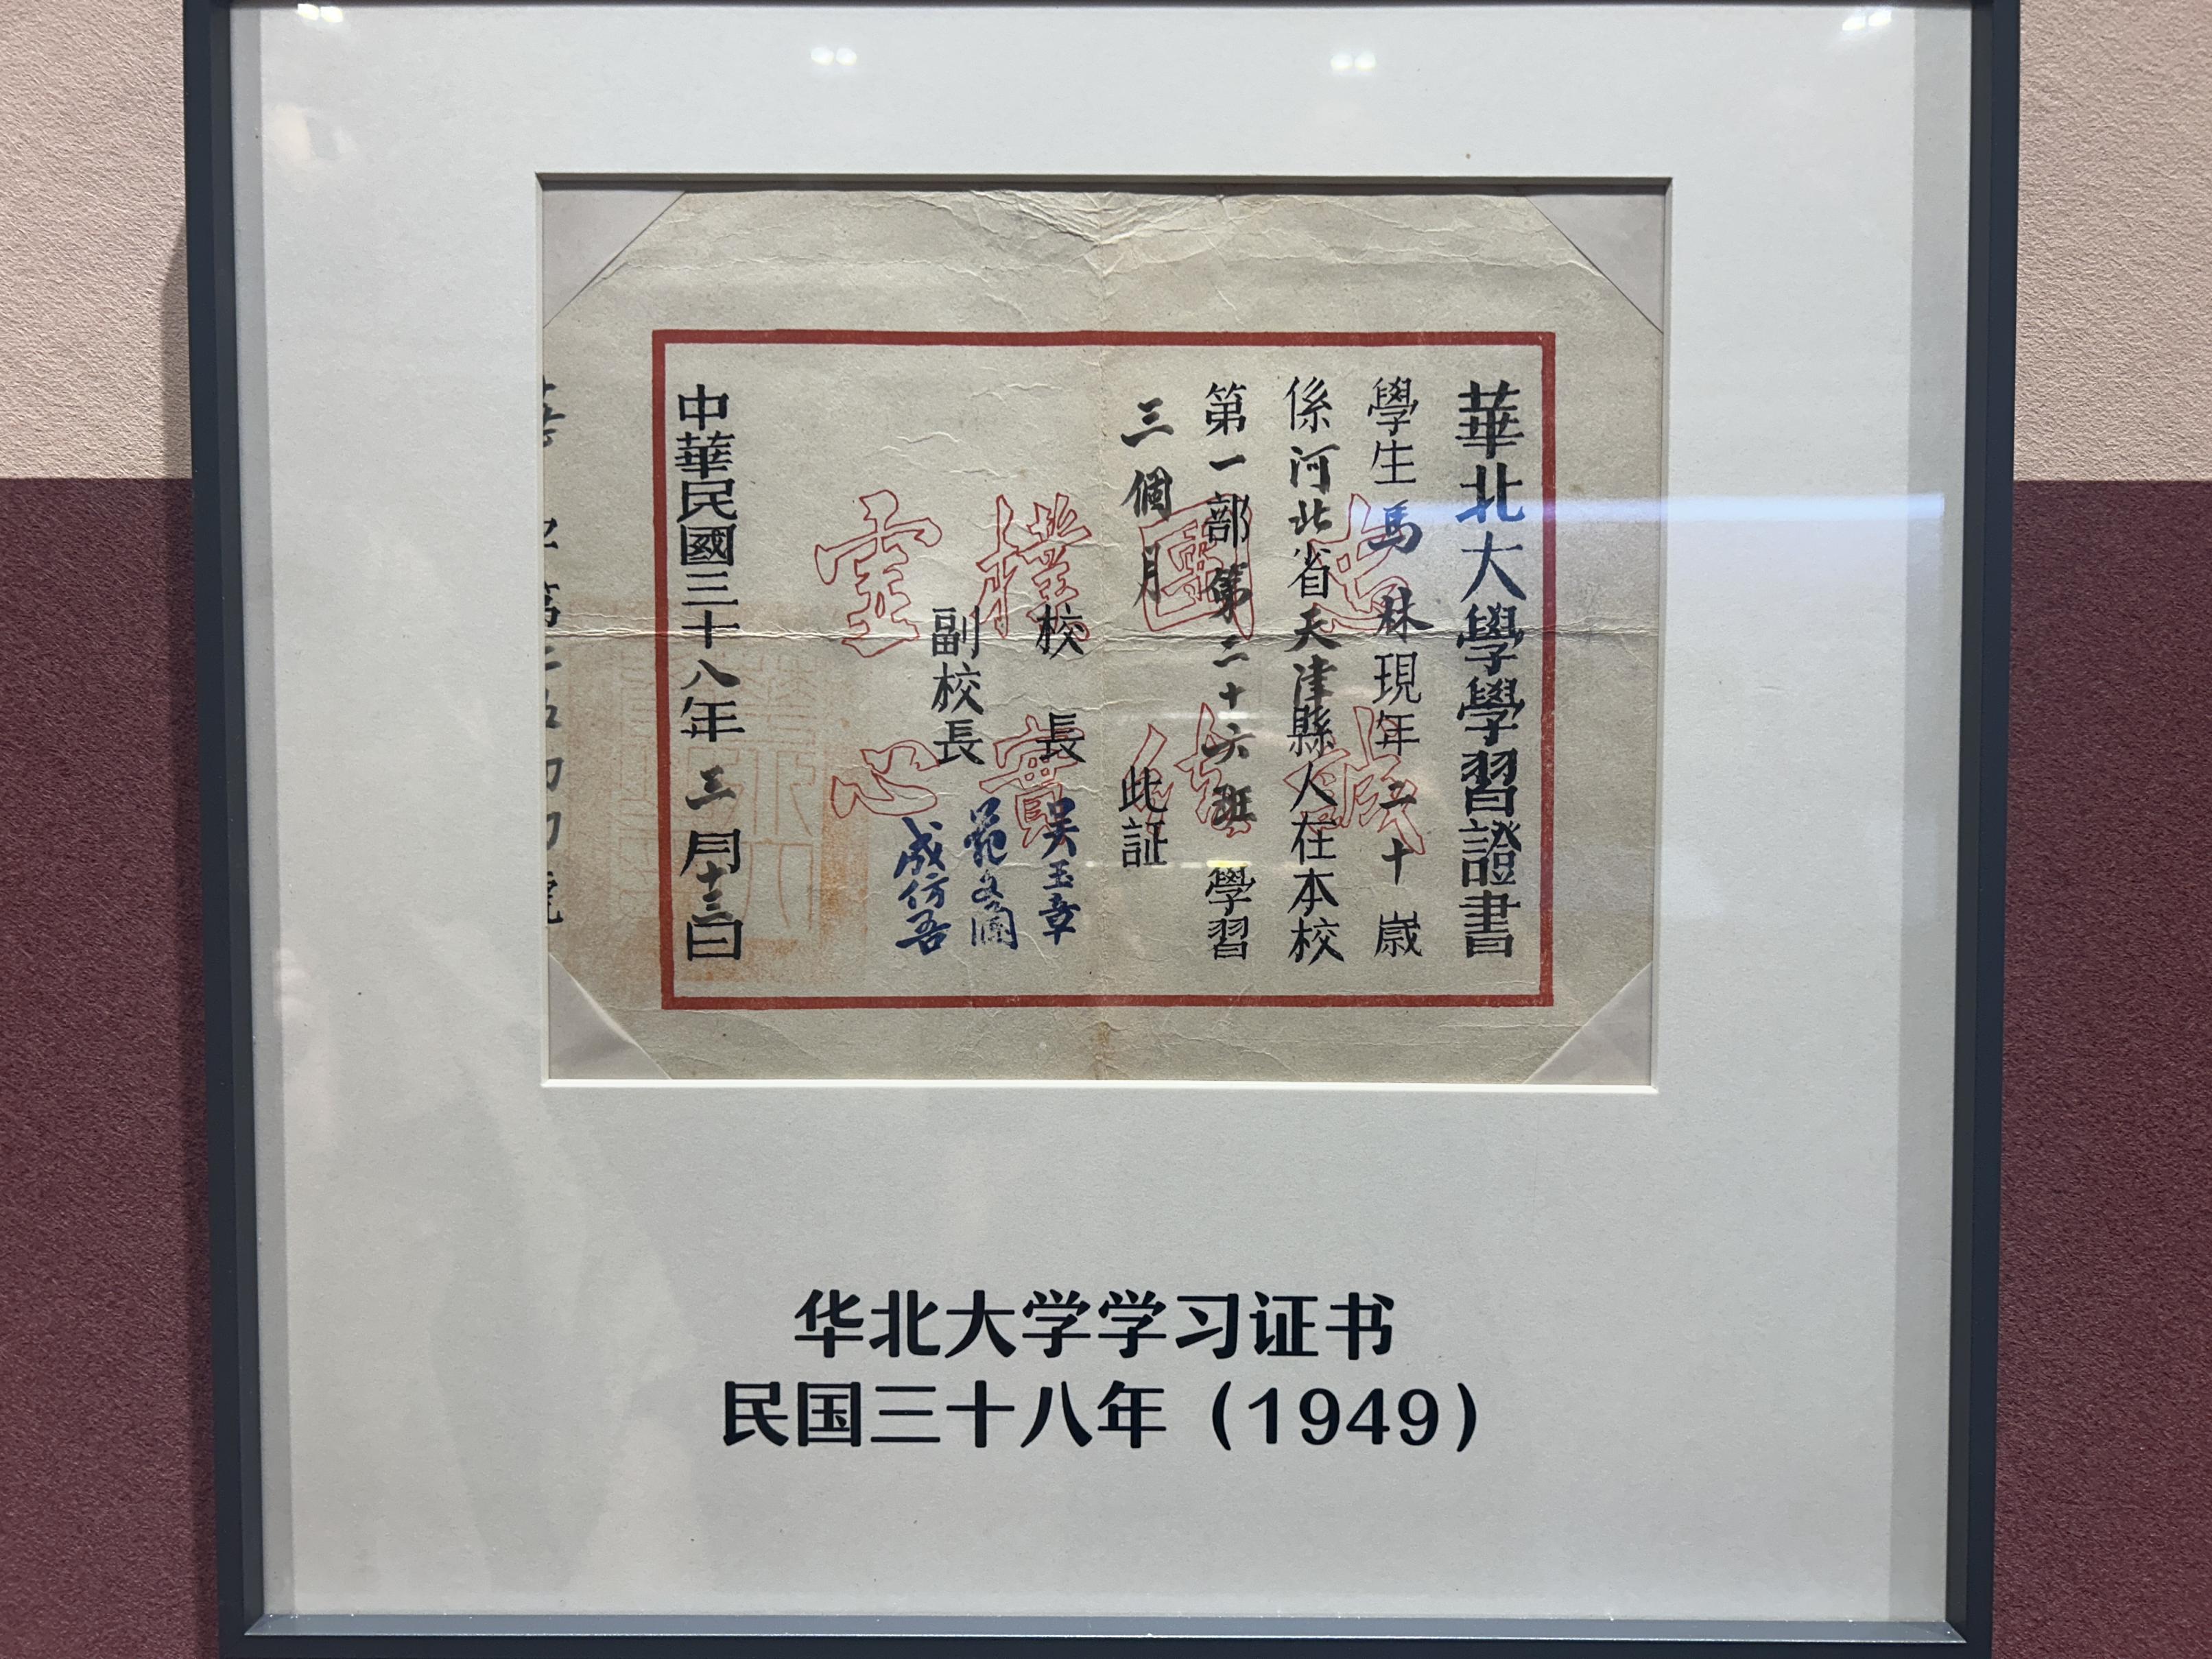 華北大學學習證書
學生馬林現年二十歲
係河北省天津縣人在本校
第一部第二十六班學習
三個月 此証
校長 吳玉章
副校長 范文瀾
成仿吾
中華民國三十八年三月十三日
忠誠
團結
樸實
虛心
华北大学学习证书
民国三十八年（1949）